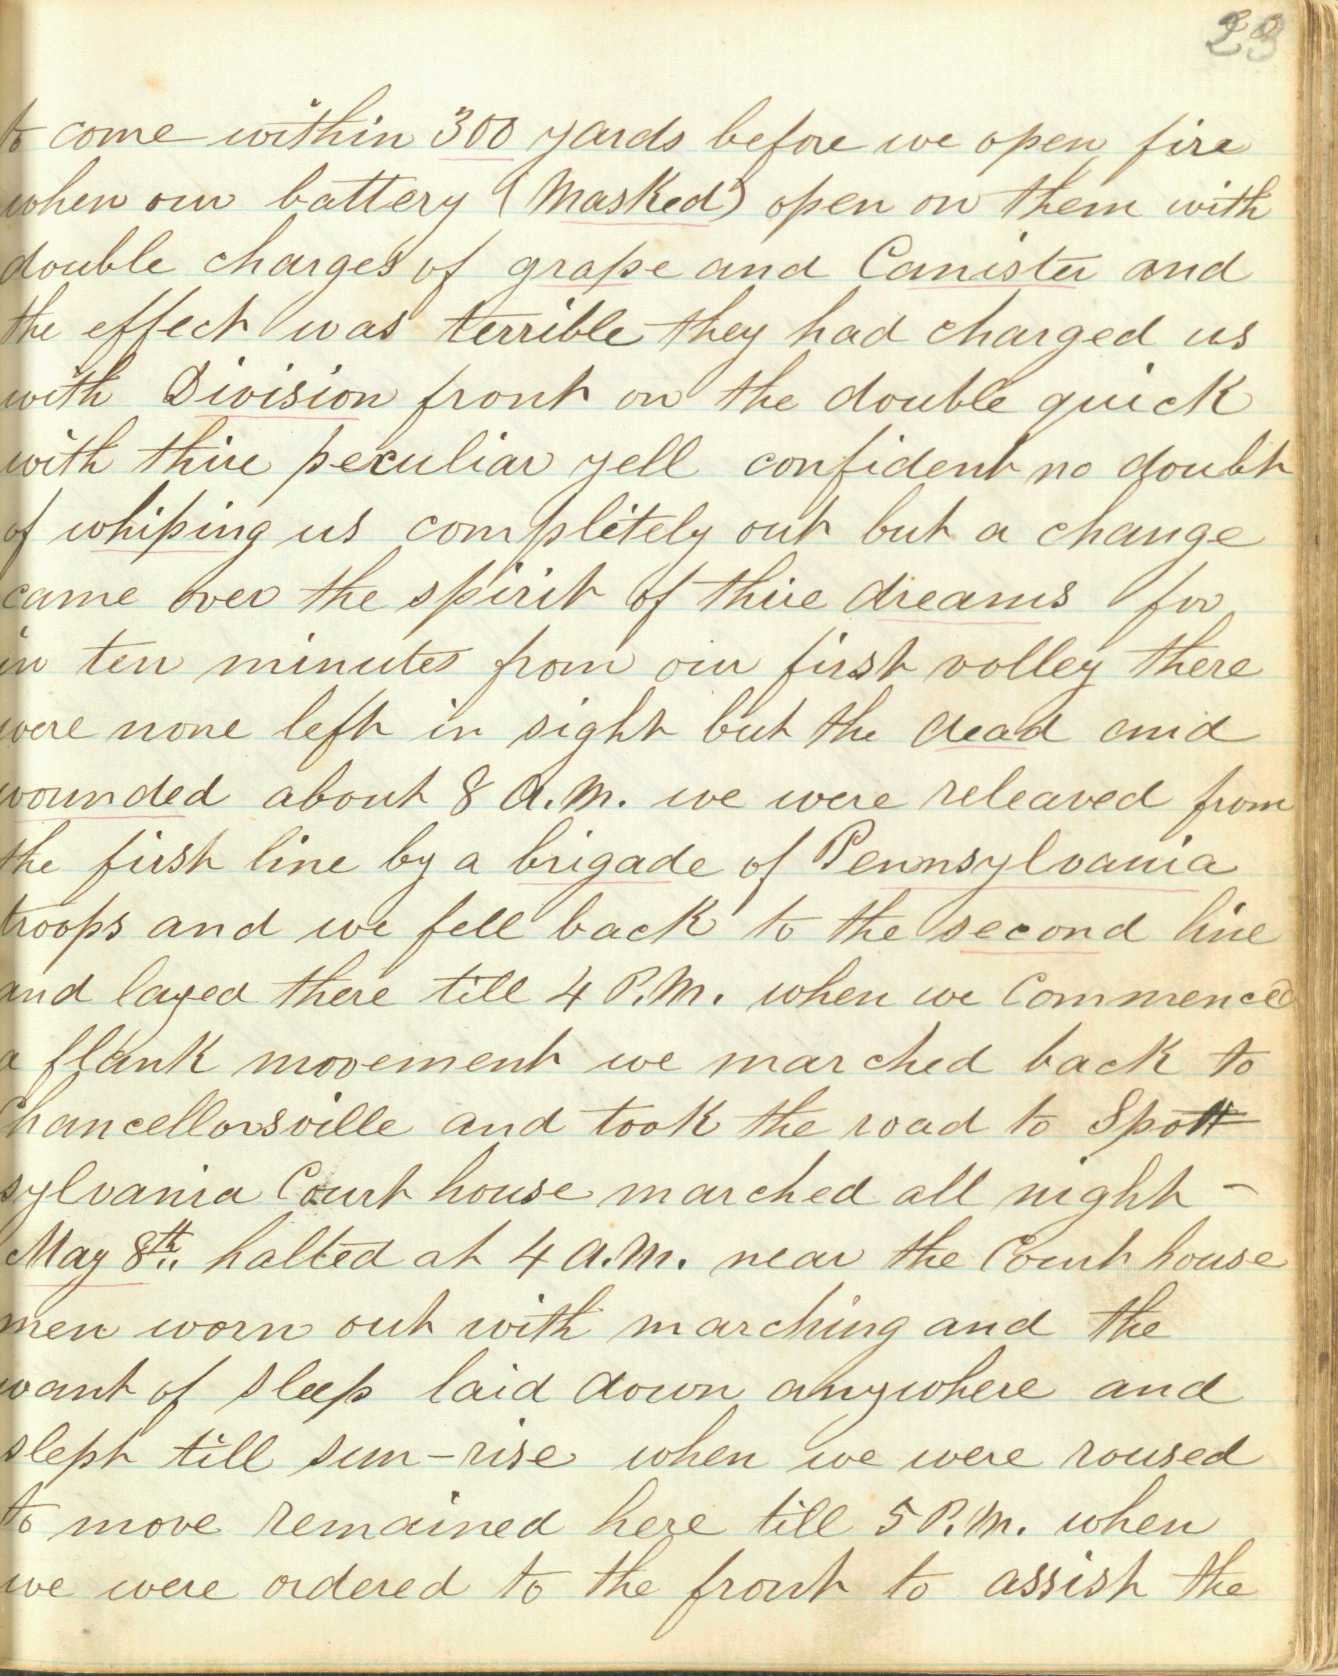 23
to come within 300 yards before we open fire
when our battery (Masked) open on them with
double charges of grape and Canister and
the effect was terrible they had charged us
with Division front on the double quick
with thire peculiar yell confident no doubt
of whiping us completely out but a change
came over the spirit of thire dreams for
in ten minutes from our first volley there
were none left in sight but the dead and
wounded about 8 A.M. we were releaved from
the first line by a brigade of Pennsylvania
troops and we fell back to the second line
and layed there till 4 P.M. when we Commenced
a flank movement we marched back to
Chancellorsville and took the road to Spott
sylvania Court house marched all night –
May 8th. halted at 4 A.M. near the Court house
men worn out with marching and the
want of sleep laid down anywhere and
slept till sun-rise when we were roused
to move remained here till 5 P.M. when
we were ordered to the front to assist the